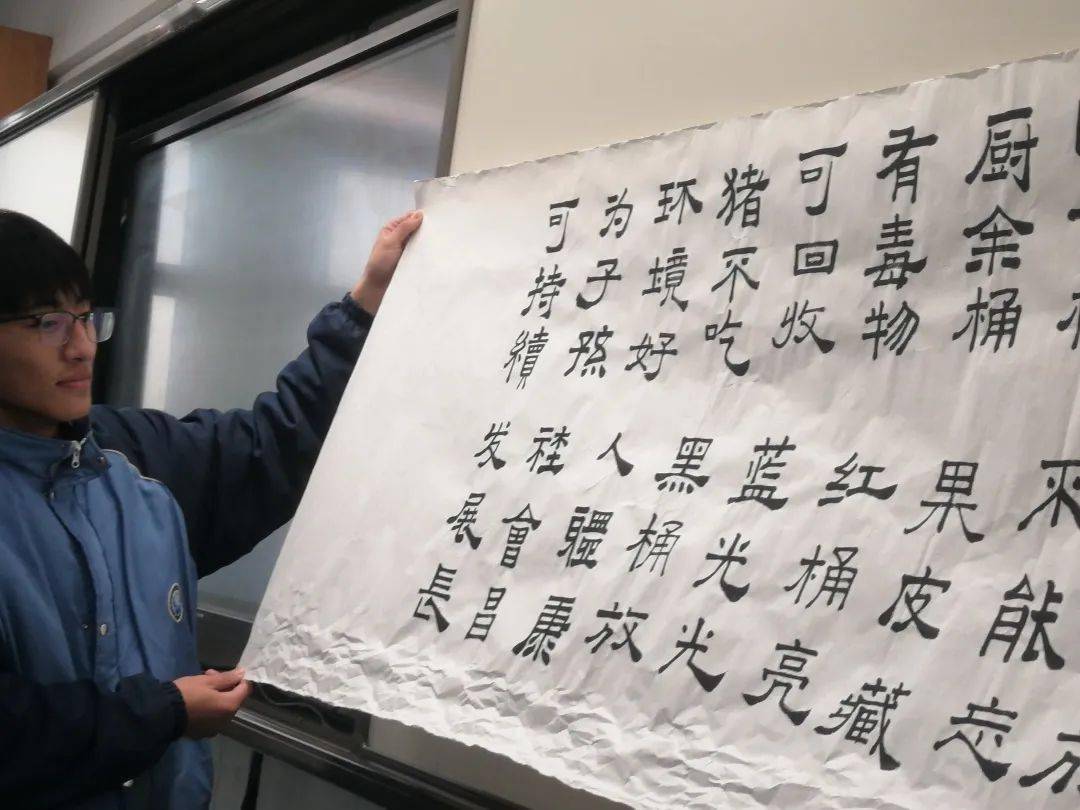 不能忘
厨余桶 果皮藏
有毒物 红桶亮
可回收 蓝光光
猪不吃 黑桶放
环境好 人疆康
为子孫 社會昌
可持續 发展長